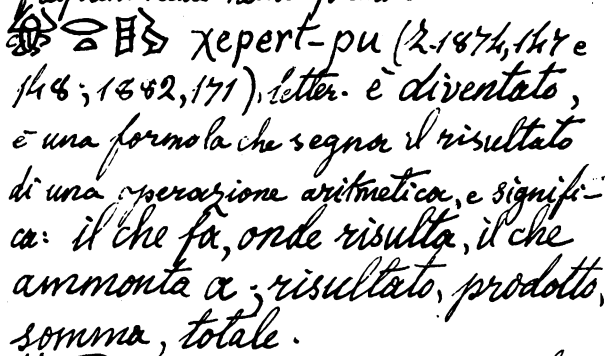 χepert-pu (Z. 1874, 147 e
148; 1882, 171), letter. è diventato,
è una formola che segna il risultato
di una operazione aritmetica, e signifi-
ca: il che fa, onde risulta, il che
ammonta a; risultato, prodotto,
somma, totale.